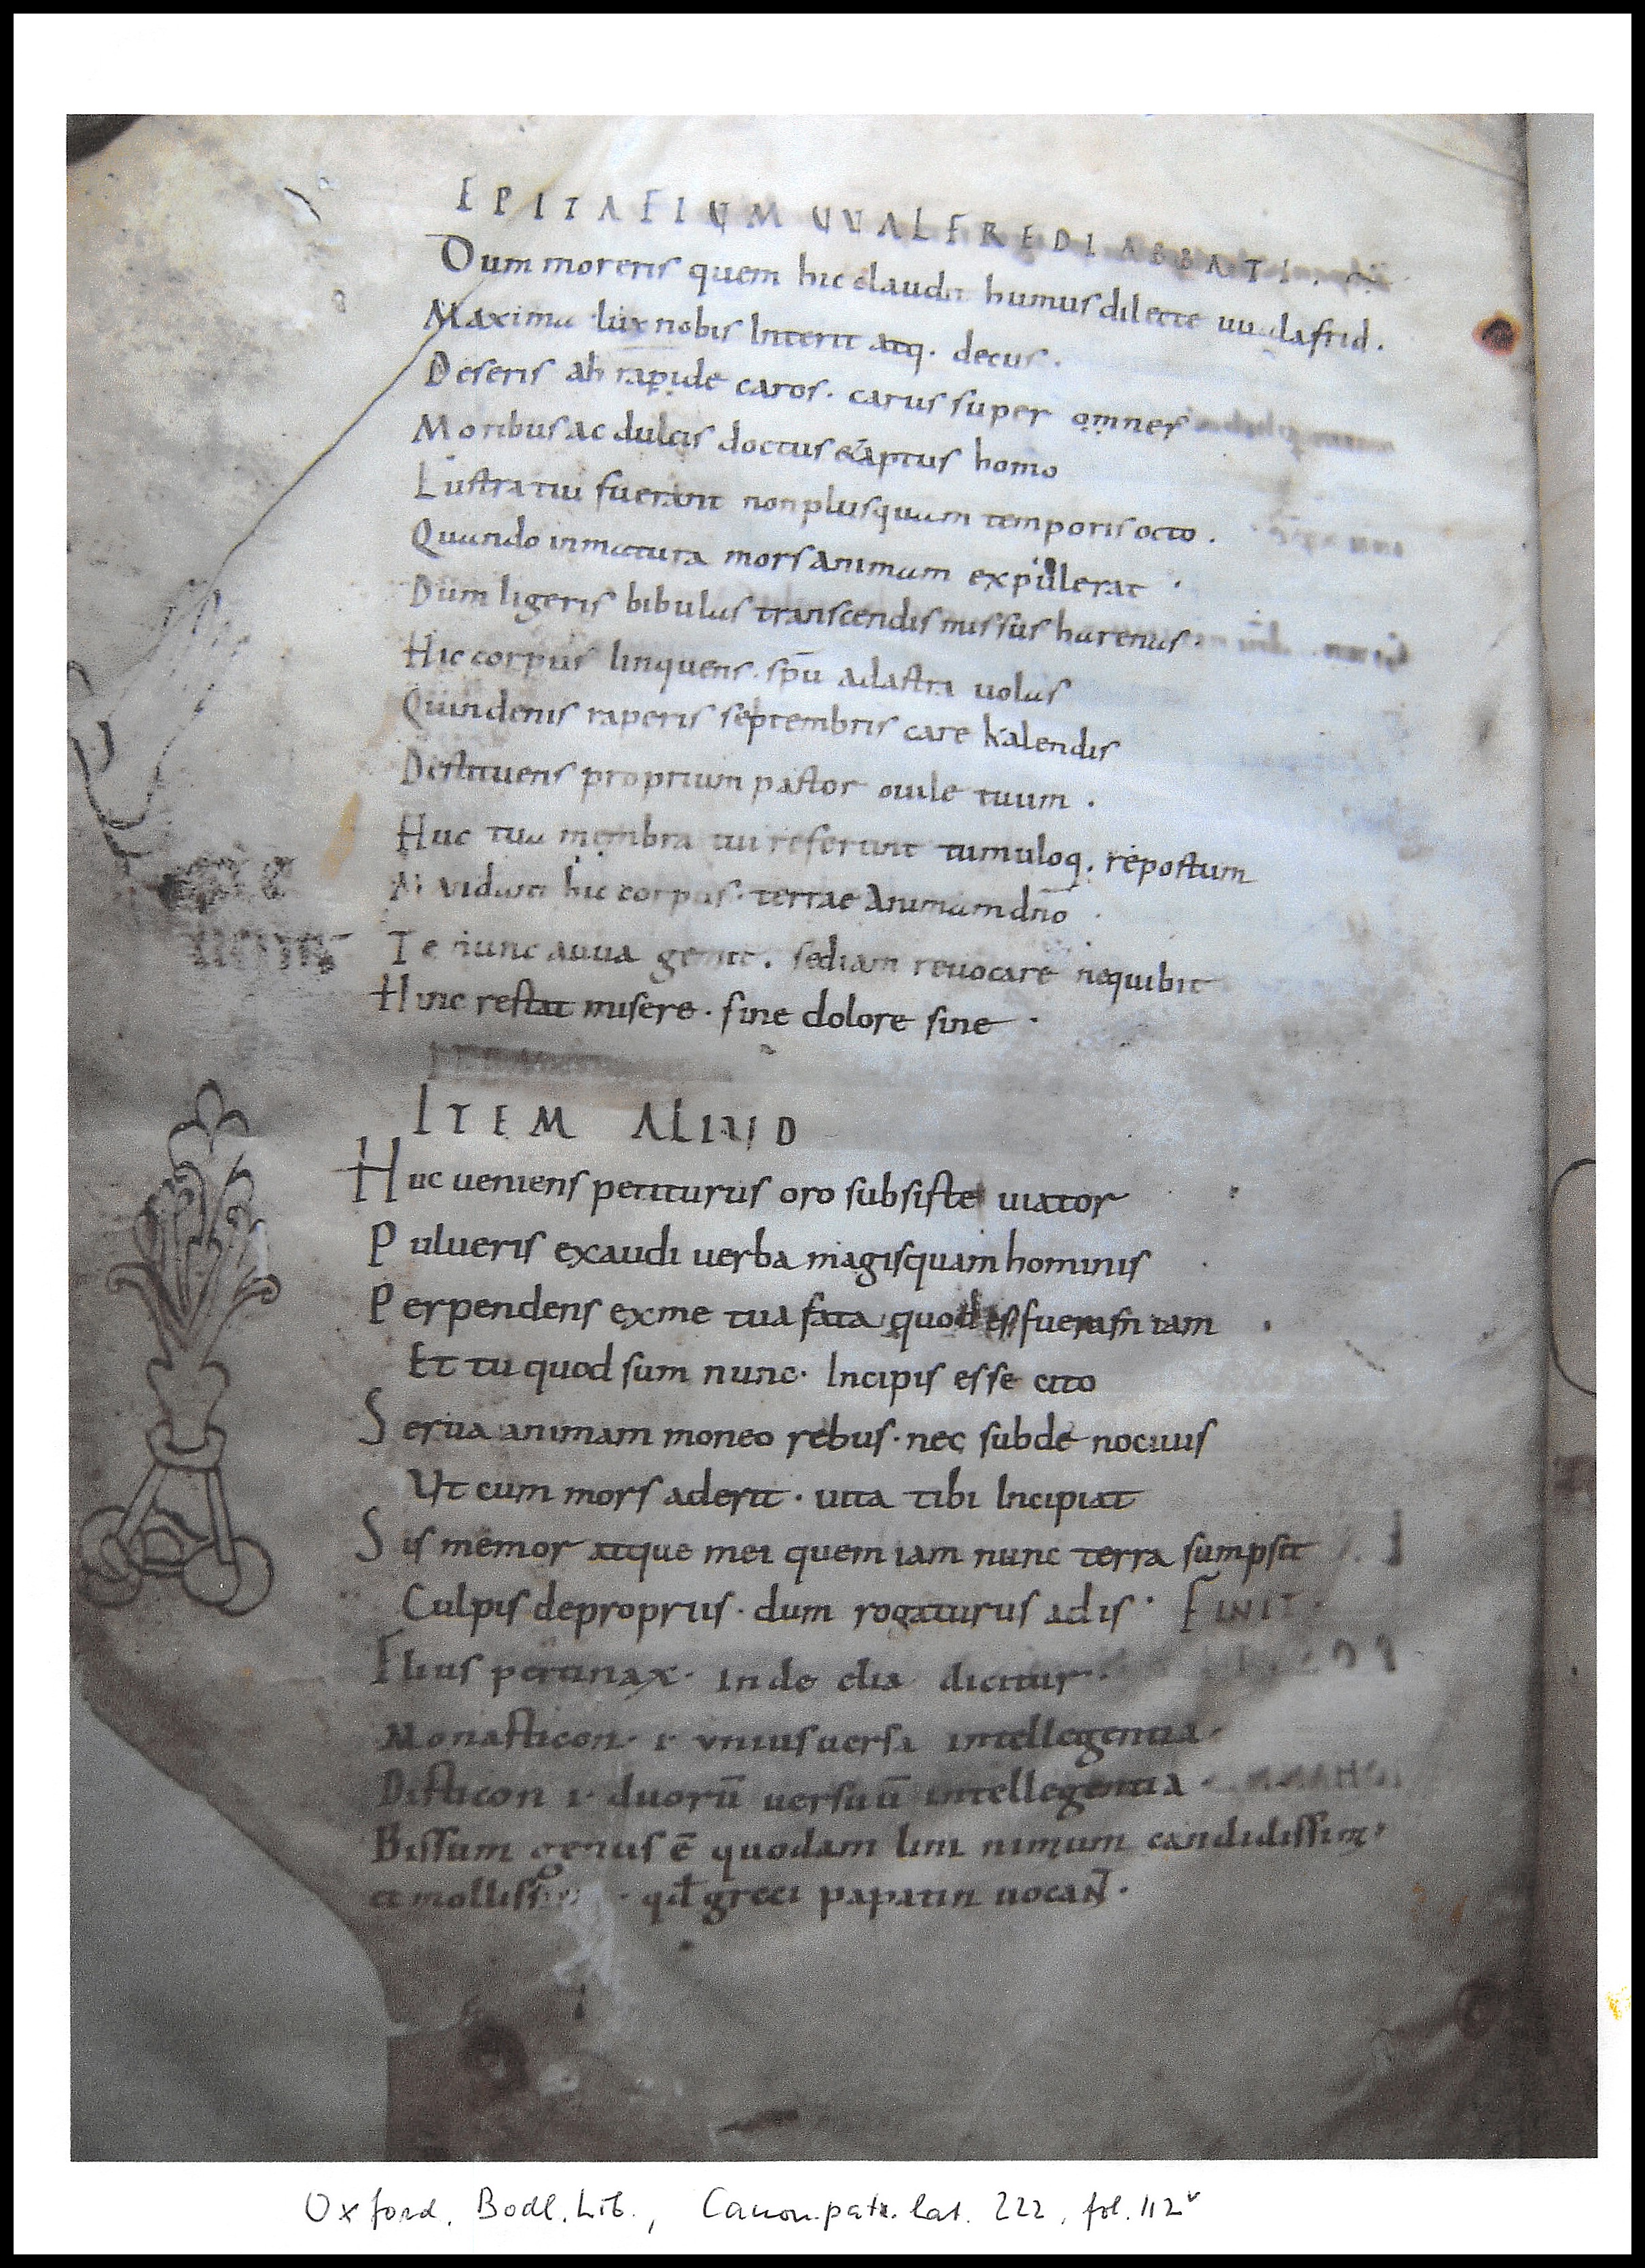 EPITAFIUM UUALFREDI ABBATI.S
Dum moreris quem hic claudit humus dilecte uualafrid.
Maxima lux nobis Interit atq. decus.
Deseris ah rapide caros. carus super omnes
Moribus ac dulcis doctus & aptus homo
Lustra tui fuerant non plusquam temporis octo.
Quando inmatura mors animam expulerat.
Dum ligeris bibulas transcendis missus harenas.
Hic corpus linquens. spū ad astra uolas
Quindenis raperis septembris care kalendis
Destituens proprium pastor ouile tuum.
Huc tua membra tui referunt tumuloq. repostum
hic corpus. terrae Animam dnō.
Te nunc auua gemit. sed iam reuocare nequibit
Hinc restat misere. sine dolore sine.
ITEM ALIUD
Huc ueniens petiturus oro subsiste uiator
Pulueris exaudi uerba magisquam hominis
Perpendens ex me tua fata quod es fueram iam.
Et tu quod sum nunc. Incipis esse cito
Serua animam moneo rebus. nec subde nociuus
Ut cum mors aderit. uita tibi Incipiat
Sis memor atque mei quem iam nunc terra sumpsit
Culpis de propriis. dum rogaturus adis. FINIT.
pertinax. inde elia dicitur.
Monasticon. i. unius uersi intellegentia.
Disticon i. duorū uersuū intellegentia
Bissum genus ē quodam lini nimum candidissim'
et mollissimi. qd greci papatin uocaN̄.
Oxford. Bodl. Lib., Canon. patr. lat. 222, fol. 112v